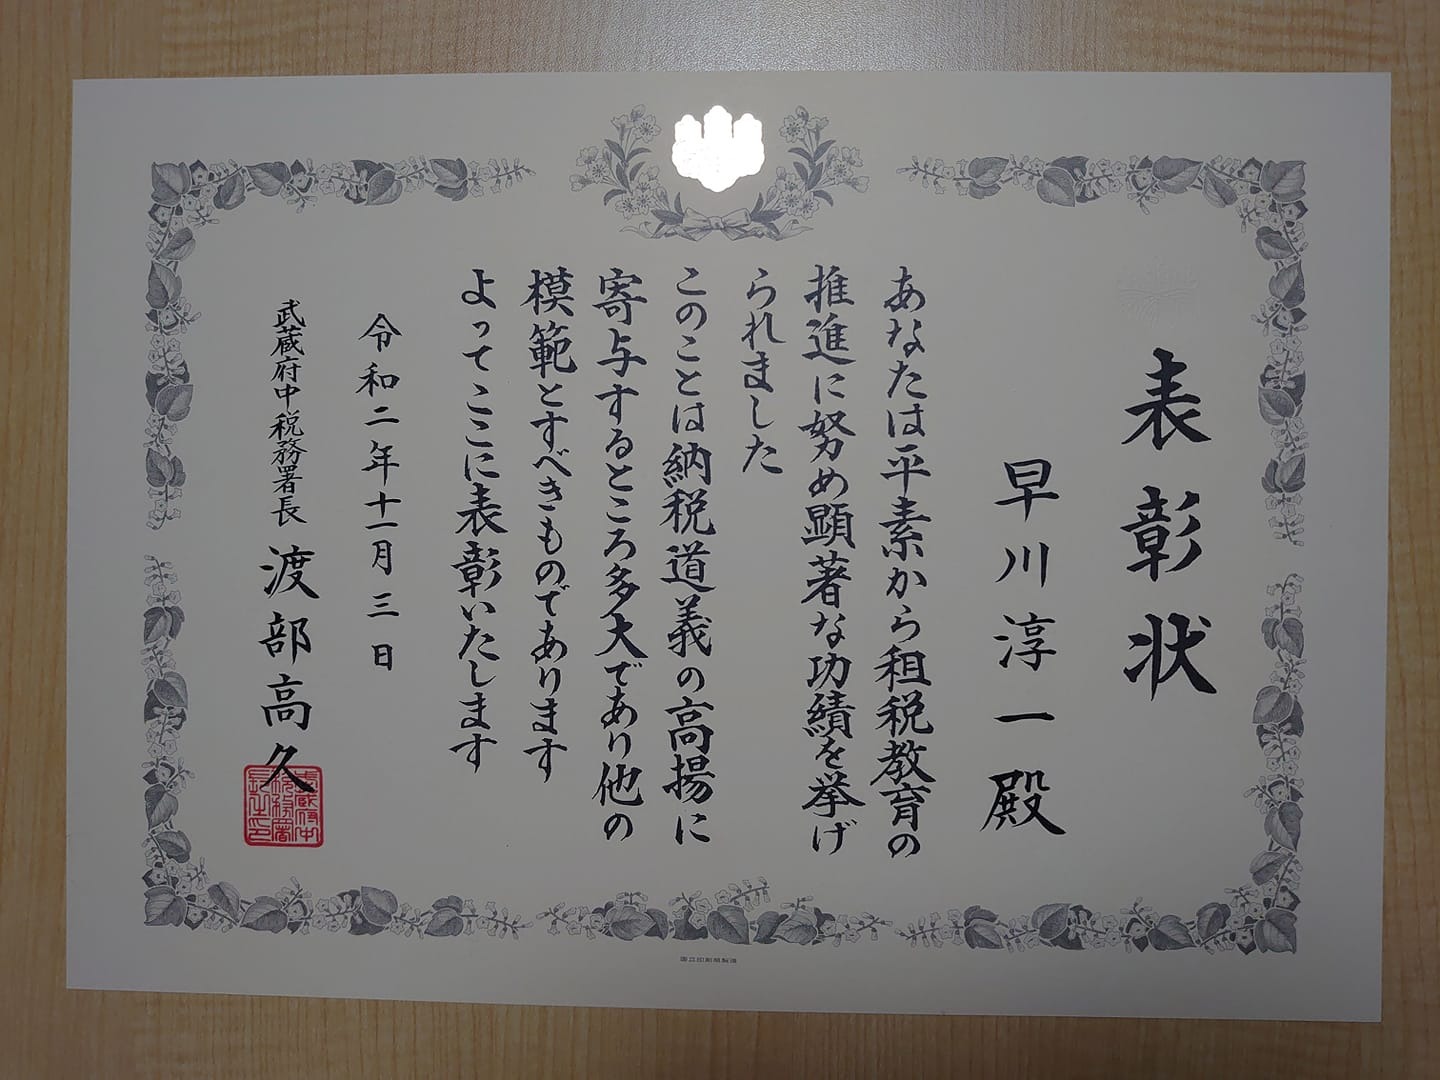 表彰状
早川淳一殿
あなたは平素から租税教育の
推進に努め顕著な功績を挙げ
られました
このことは納税道義の高揚に
寄与するところ多大であり他の
模範とすべきものであります
よってここに表彰いたします
令和二年十一月三日
武蔵府中税務署長 渡部高久
武蔵府中
税務署
長之印
国立印刷局製造